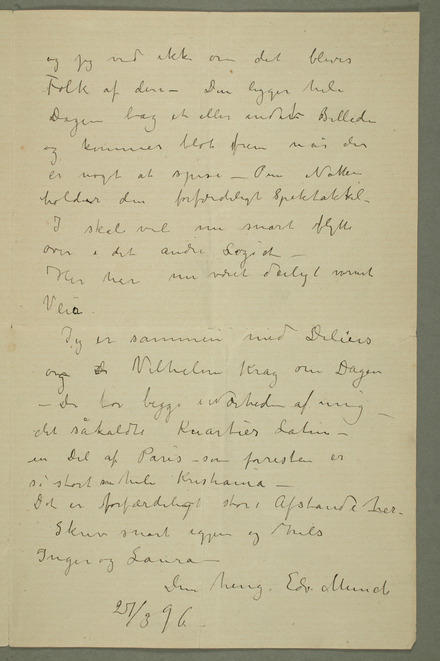 og jeg ved ikke om det blives
Folk af den – Den ligger hele
Dagen bag et eller andet Billede
og kommer blot frem når der
er nogt at spise – Om Natten
holder den forfærdeligt Spektakkel –
I skal vel nu snart flytte
over i det andre Logiet –
Her har nu været deiligt varmt
Veir.
Jeg er sammen med Delius
og Vilhelm Krag om Dagen
– De bor begge i Nærheden af mig –
det såkaldte Kvartier Latin –
en Del af Paris som forresten er
så stort som hele Kristiania –
Det er forfærdeligt store Afstande her –
Skriv snart igjen og hils
Inger og Laura –
Din heng. Edv. Munch
27/3 96